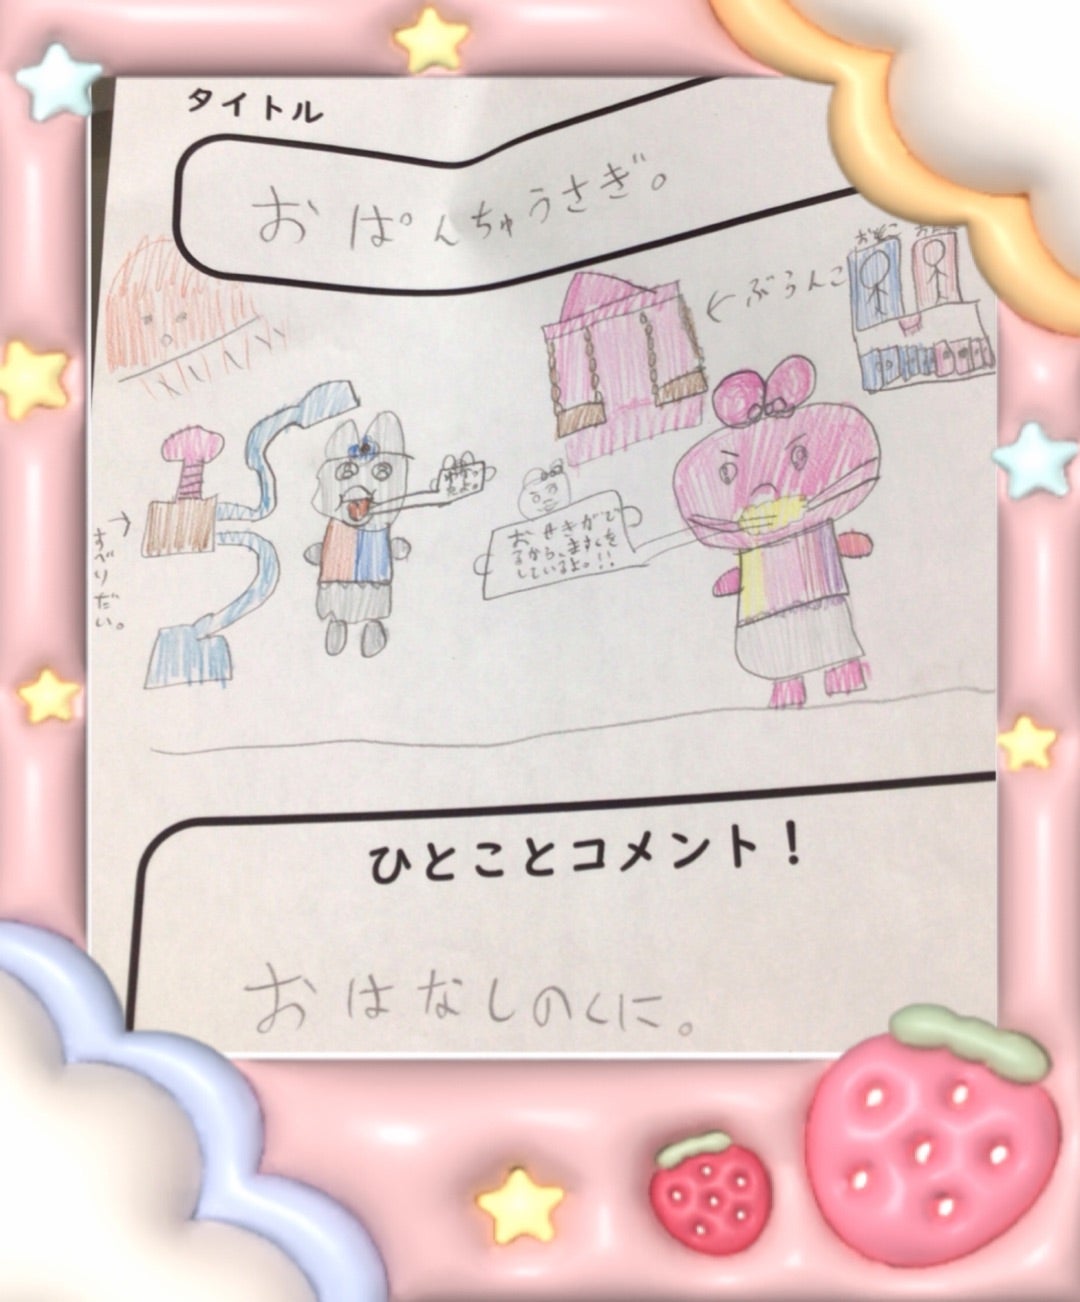 タイトル
おぱんちゅうさぎ。
←ぶらんこ
おせきがで
るから、ますくを
しているよ。!!
すべりだい。
ひとことコメント!
おはなしのくに。